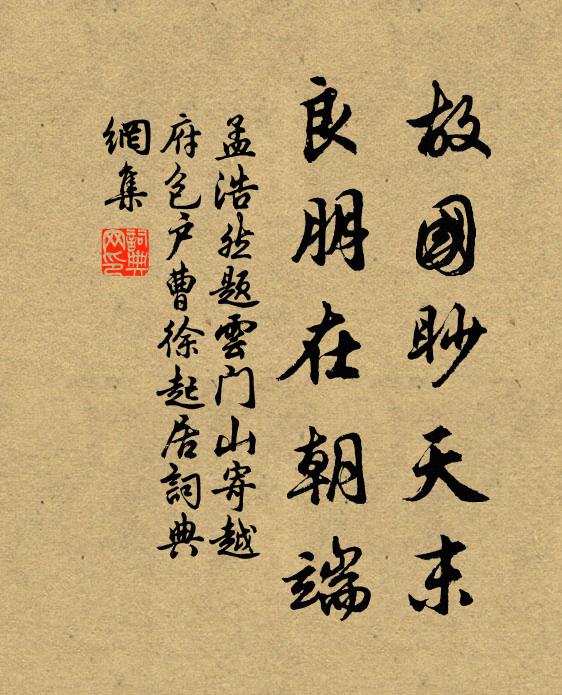 故國眇天末
良朋在朝端
孟浩然題雲门山寄越
府包户曹徐起居詞典
網集
詞典网印